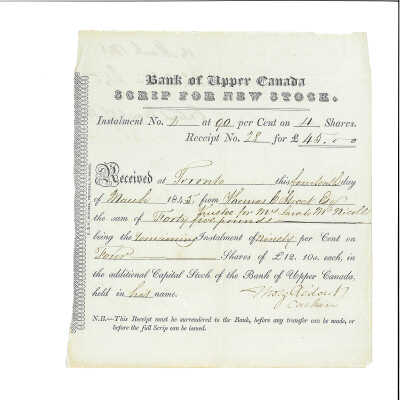 Bank of Upper Canada
SCRIP FOR NEW STOCK.
Instalment No. at 90 per Cent on 4 Shares.
Receipt No. 28 for £45. 0 0
Received at Toronto this day
of March from Thomas C Street Esq
trustee for Mrs Sarah
the sum of Forty five pounds
being the remaining Instalment of ninety per Cent on
Four Shares of £12. 10s. each, in
the additional Capital Stock of the Bank of Upper Canada,
held in her name.
Thos G Ridout
Cashier
N.B.—This Receipt must be surrendered to the Bank, before any transfer can be made, or
before the full Scrip can be issued.